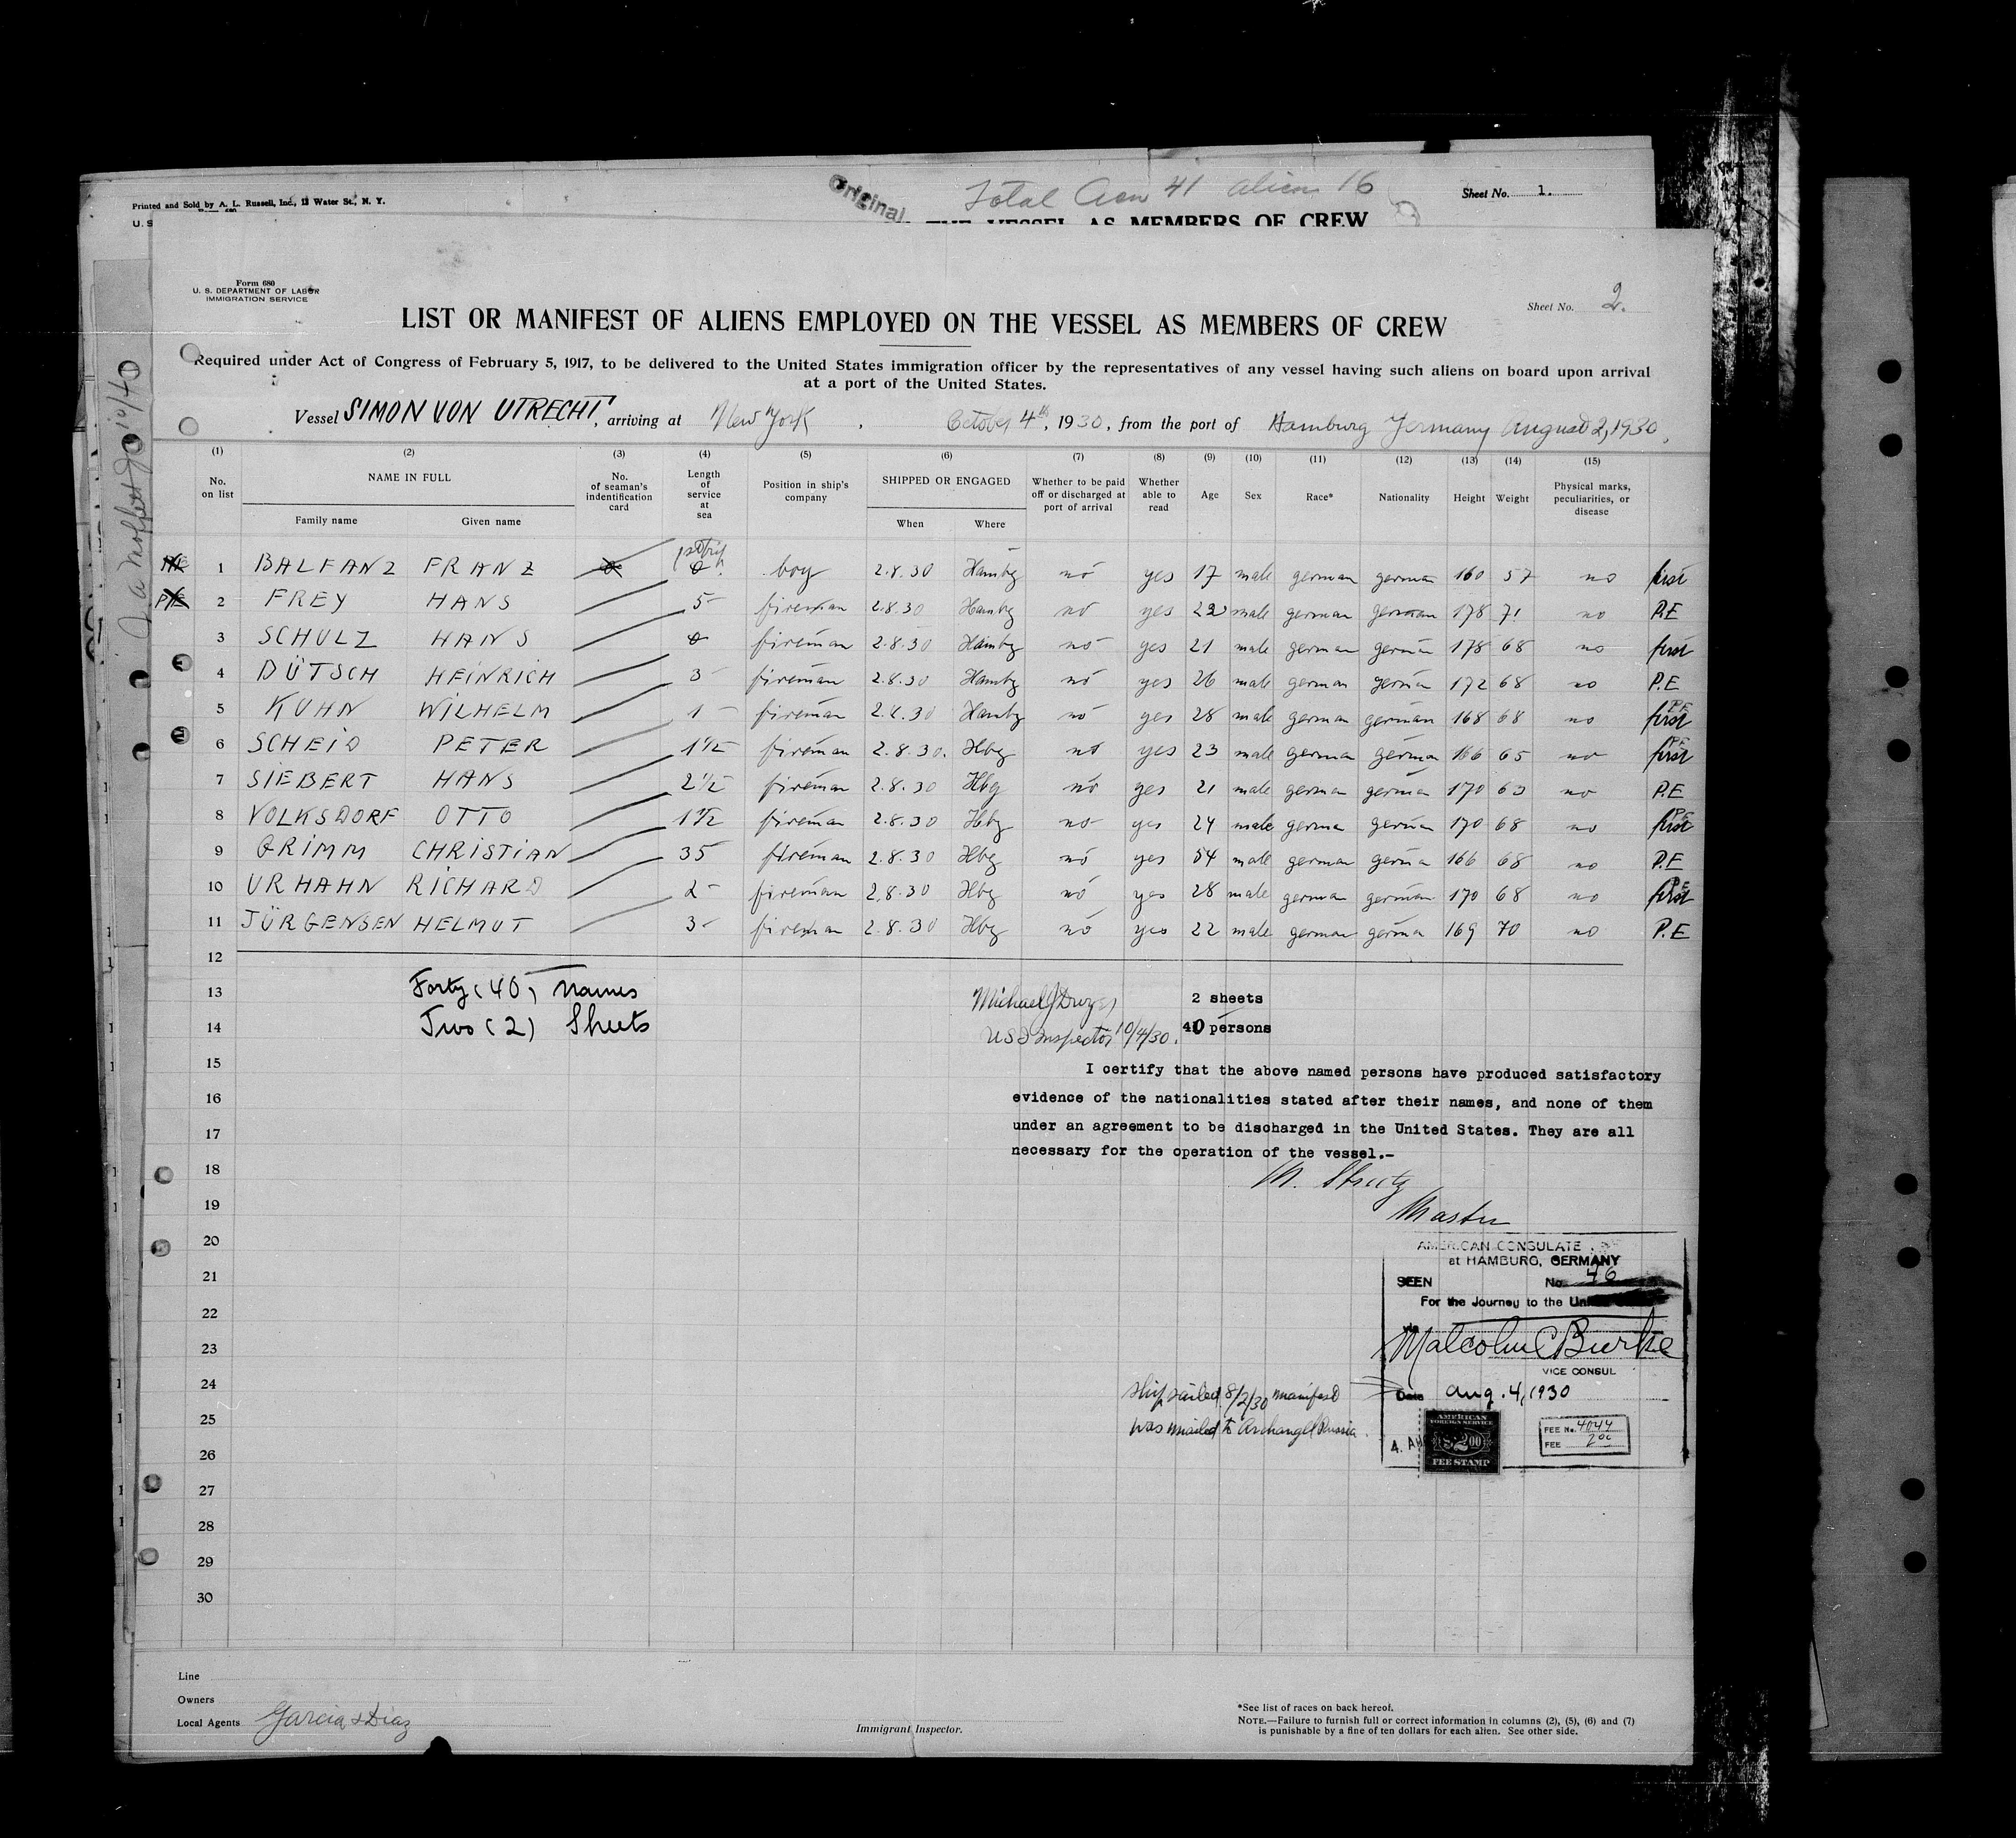 Printed and Sold by A. L. Russell, Inc., 12 Water St., N. Y.
Original
Total Crew 41 aliens 16
Sheet No. 1.
Form 680
U. S
THE VESSEL AS MEMBERS OF CREW
Form 680
U. S. DEPARTMENT OF LABOR
IMMIGRATION SERVICE
Sheet No. 2.
LIST OR MANIFEST OF ALIENS EMPLOYED ON THE VESSEL AS MEMBERS OF CREW
Required under Act of Congress of February 5, 1917, to be delivered to the United States immigration officer by the representatives of any vessel having such aliens on board upon arrival
at a port of the United States.
Vessel SIMON VON UTRECHT, arriving at New York, October 4th, 1930, from the port of Hamburg Germany August 2, 1930.
(1) (2) (3) (4) (5) (6) (7) (8) (9) (10) (11) (12) (13) (14) (15)
No. on list NAME IN FULL Family name Given name No. of seaman's indentification card Length of service at sea Position in ship's company SHIPPED OR ENGAGED When Where Whether to be paid off or discharged at port of arrival Whether able to read Age Sex Race* Nationality Height Weight Physical marks, peculiarities, or disease
1st trip
1 BALFANZ FRANZ 0 boy 2.8.30 Hambg no yes 17 male german german 160 57 no first
P/E 2 FREY HANS 5 fireman 2.8.30 Hambg no yes 22 male german german 178 71 no P.E
3 SCHULZ HANS 0 fireman 2.8.30 Hambg no yes 21 male german german 178 68 no first
4 DÜTSCH HEINRICH 3 fireman 2.8.30 Hambg no yes 26 male german german 172 68 no P.E
5 KUHN WILHELM 1 fireman 2.8.30 Hambg no yes 28 male german german 168 68 no first P.E
6 SCHEID PETER 1 1/2 fireman 2.8.30. Hbg no yes 23 male german german 166 65 no first P.E
7 SIEBERT HANS 2 1/2 fireman 2.8.30 Hbg no yes 21 male german german 170 63 no P.E
8 VOLKSDORF OTTO 1 1/2 fireman 2.8.30 Hbg no yes 24 male german german 170 68 no first P.E
9 GRIMM CHRISTIAN 35 fireman 2.8.30 Hbg no yes 54 male german german 166 68 no P.E
10 URHAHN RICHARD 2 fireman 2.8.30 Hbg no yes 28 male german german 170 68 no first P.E
11 JÜRGENSEN HELMUT 3 fireman 2.8.30 Hbg no yes 22 male german german 169 70 no P.E
12
13 Forty (40) names Michael J 2 sheets
14 Two (2) Sheets US Inspector 10/4/30. 40 persons
15 I certify that the above named persons have produced satisfactory
16 evidence of the nationalities stated after their names, and none of them
17 under an agreement to be discharged in the United States. They are all
necessary for the operation of the vessel.-
18
19 Master
20 AMERICAN CONSULATE
at HAMBURG, GERMANY
21 SEEN No. 46
For the Journey to the
22
23 Malcolm C Burke
VICE CONSUL
24 Ship sailed 8/2/30 manifest Date Aug. 4, 1930
25 was mailed to Archangel Russia.
AMERICAN FOREIGN SERVICE $2.00 FEE STAMP
FEE No. 4044
FEE 2.00
26
27
28
29
30
Line
Owners
Local Agents Garcia & Diaz
Immigrant Inspector.
*See list of races on back hereof.
NOTE.—Failure to furnish full or correct information in columns (2), (5), (6) and (7)
is punishable by a fine of ten dollars for each alien. See other side.